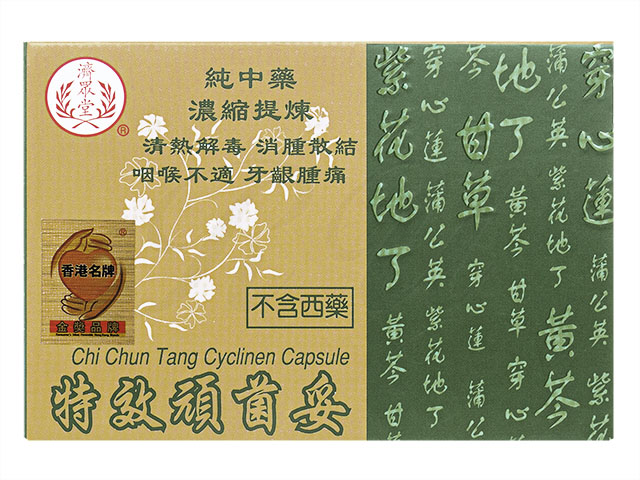 濟眾堂
®
純中藥
濃縮提煉
清熱解毒 消腫散結
咽喉不適 牙齦腫痛
®
香港名牌
金獎品牌
不含西藥
Chi Chun Tang Cyclinen Capsule
特效頑菌妥
穿心蓮 蒲公英 紫花
蒲公英 紫花地丁 黃芩
芩 地丁 黃芩 甘草 穿心
甘草 穿心蓮 蒲公
穿心蓮 蒲公英 紫花地丁
紫花地丁 黃芩 甘草